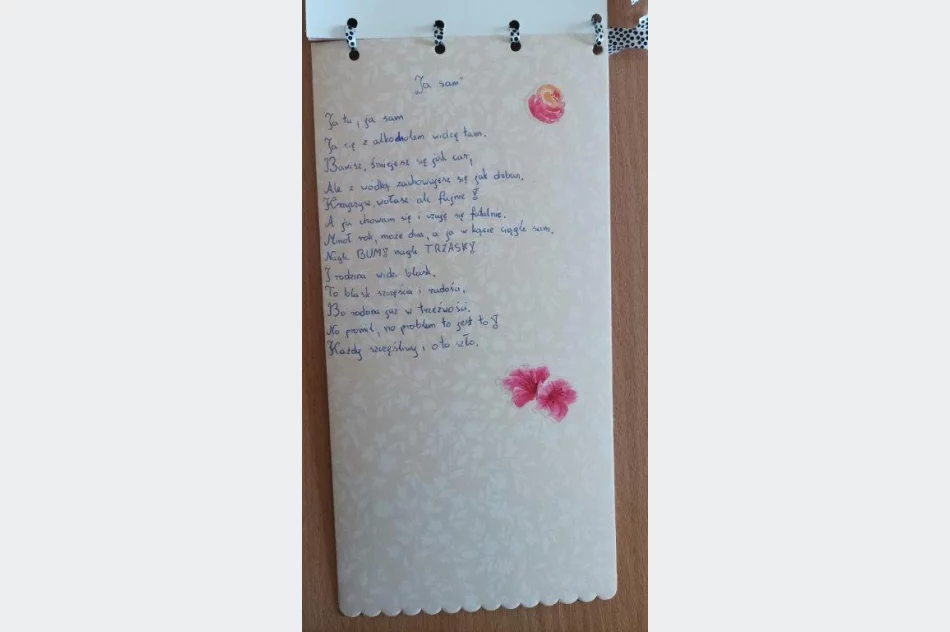 „Ja sam"
Ja tu, ja sam
Ja cię z alkoholem widzę tam.
Bawisz, śmiejesz się jak car,
Ale z wodką zachowujesz się jak dzban.
Krzyczysz, wołasz ale fajnie!
A ja chowam się i czuję się fatalnie.
Minął rok, może dwa, a ja w kącie ciągle sam.
Nagle BUM! nagle TRZASK!
I rodzina widzi blask.
To blask szczęścia i radości,
Bo rodzina już w trzeźwości.
No promil, no problem to jest to!
Każdy szczęśliwy i oto szło.